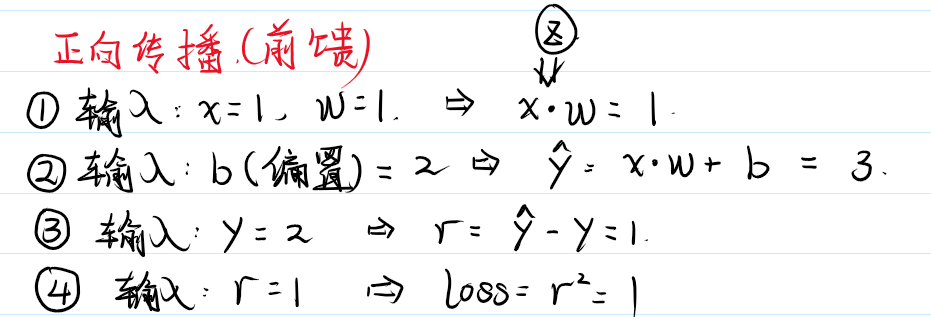 正向传播.(前馈)
Z
① 输入: x=1、w=1. ⇒ x·w = 1.
② 输入: b(偏置)=2 ⇒ ŷ = x·w + b = 3.
③ 输入: y=2 ⇒ r = ŷ - y = 1.
④ 输入: r=1 ⇒ loss = r² = 1